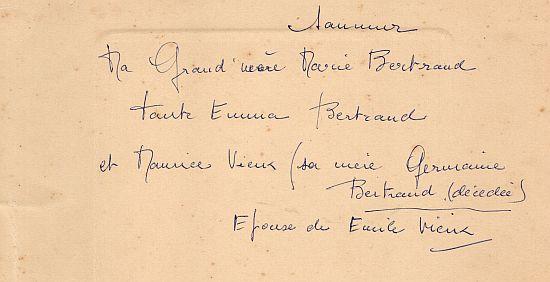 Saumur
Ma Grand'mère Marie Bertrand
tante Emma Bertrand
et Maurice Vieux (sa mère Germaine
Bertrand (décédée)
Epouse de Emile Vieux